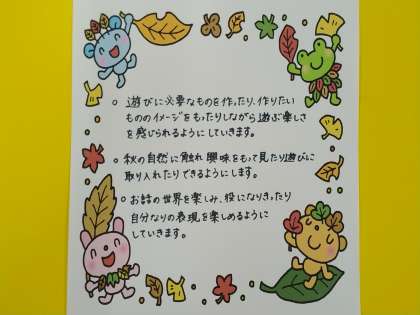 ○ 遊びに必要なものを作ったり、作りたい
もののイメージをもったりしながら遊ぶ楽しさ
を感じられるようにしていきます。
○ 秋の自然に触れ興味をもって見たり遊びに
取り入れたりできるようにします。
○ お話の世界を楽しみ、役になりきったり
自分なりの表現を楽しめるように
していきます。